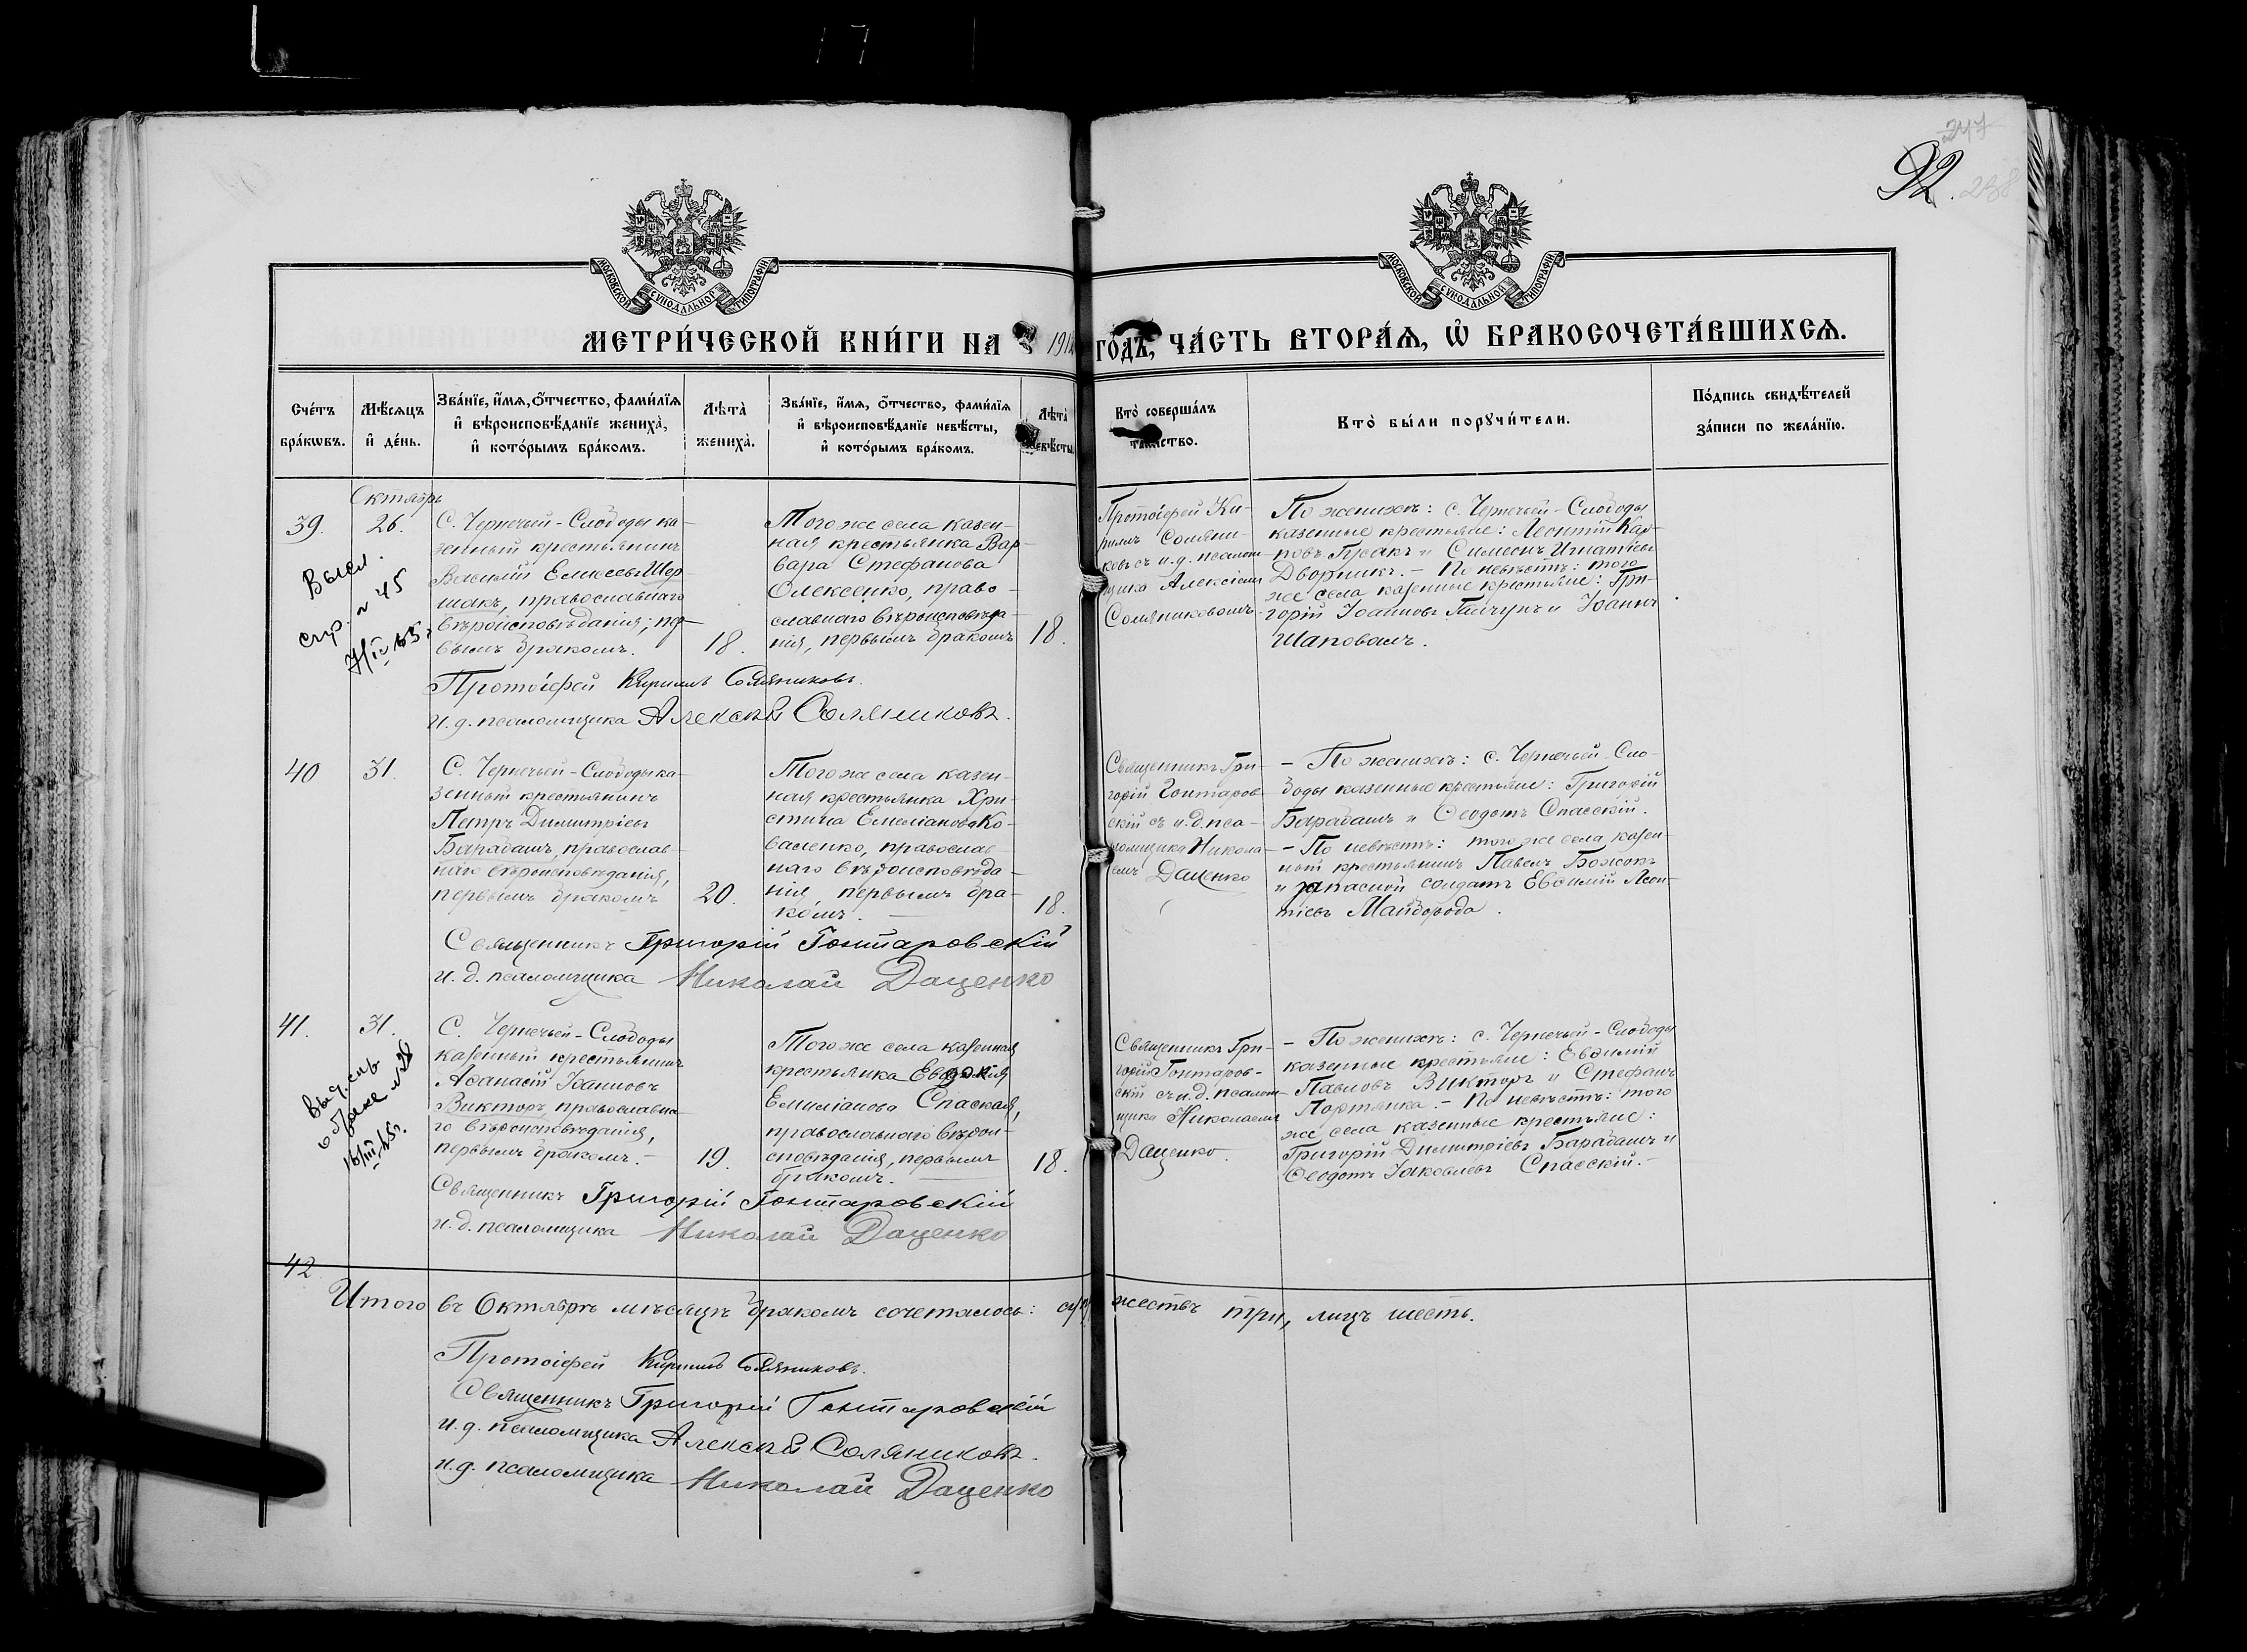 17
247
92. 238
МОСКОВСКОЙ СѴНОДАЛЬНОЙ ТИПОГРАФІИ
МОСКОВСКОЙ СѴНОДАЛЬНОЙ ТИПОГРАФІИ
МЕТРИ́ЧЕСКОЙ КНИ́ГИ НА 191
ГО́ДЪ, ЧА́СТЬ ВТОРА́Я, Ѽ БРАКОСОЧЕТА́ВШИХСѦ.
Сче́тъ бра́кѡвъ.
Мѣ́сѧцъ и҆ де́нь.
Зва́нїе, и҆́мѧ, ѻ҆́тчество, фами́лїѧ и҆ вѣроисповѣ́данїе жениха̀, и҆ кото́рымъ бра́комъ.
Лѣта̀ жениха̀.
Зва́нїе, и҆́мѧ, ѻ҆́тчество, фами́лїѧ и҆ вѣроисповѣ́данїе невѣ́сты, и҆ кото́рымъ бра́комъ.
Лѣта̀ невѣ́сты
Кто̀ соверша́лъ та́инство.
Кто̀ бы́ли порꙋчи́тели.
По́дпись свидѣ́телей за́писи по жела́нїю.
Октябрь
39.
26.
С. Чернечьей-Слободы ка-
зенный крестьянинъ
Василій Елисеевъ Шер-
шакъ, православнаго
вѣроисповѣданія, пер-
вымъ бракомъ.
18.
Того же села казен-
ная крестьянка Вар-
вара Стефанова
Олексенко, право-
славнаго вѣроисповѣда-
нія, первымъ бракомъ
18.
Протоіерей Ки-
риллъ Соляни-
ковъ съ и.д. псалом-
щика Алексіемъ
Соляниковымъ.
По женихѣ: с. Чернечьей-Слободы
казенные крестьяне: Леонтій Кар-
повъ Гусакъ и Симеонъ Игнатіевъ
Дворникъ. - По невѣстѣ: того
же села казенные крестьяне: Гри-
горій Іоанновъ Галчунъ и Іоаннъ
Шаповалъ.
стр. № 45
Протоіерей Кириллъ Соляниковъ.
и.д. псаломщика Алексѣй Соляниковъ.
40
31.
С. Чернечьей-Слободы ка-
зенный крестьянинъ
Петръ Димитріевъ
Барабашъ, православ-
наго вѣроисповѣданія,
первымъ бракомъ
20.
Того же села казен-
ная крестьянка Хри-
стина Емеліанова Ко-
валенко, православ-
наго вѣроисповѣда-
нія, первымъ бра-
комъ.
18.
Священникъ Гри-
горій Гонтаров-
скій съ и.д. пса-
ломщика Никола-
емъ Даценко
- По женихѣ: с. Чернечьей-Сло-
боды казенные крестьяне: Григорій
Барабашъ и Ѳеодотъ Спасскій.
- По невѣстѣ: того же села казен-
ный крестьянинъ Павелъ Божокъ
и запасной солдатъ Евѳимій Леон-
тіевъ Майборода.
Священникъ Григорій Гонтаровскій
и.д. псаломщика Николай Даценко
41.
31.
С. Чернечьей-Слободы
казенный крестьянинъ
Аѳанасій Іоанновъ
Викторъ, православна-
го вѣроисповѣданія,
первымъ бракомъ.
19.
Того же села казенная
крестьянка Евдокія
Емиліанова Спаская,
православнаго вѣрои-
сповѣданія, первымъ
бракомъ.
18.
Священникъ Гри-
горій Гонтаров-
скій съ и.д. псалом-
щика Николаемъ
Даценко.
- По женихѣ: с. Чернечьей-Слободы
казенные крестьяне: Евѳимій
Павловъ Викторъ и Стефанъ
Портянка. - По невѣстѣ: того
же села казенные крестьяне:
Григорій Димитріевъ Барабашъ и
Ѳеодотъ Іаковлевъ Спасскій.
о браке
Священникъ Григорій Гонтаровскій
и.д. псаломщика Николай Даценко
42.
Итого въ Октябрѣ мѣсяцѣ бракомъ сочеталось: супружествъ три, лицъ шесть.
Протоіерей Кириллъ Соляниковъ.
Священникъ Григорій Гонтаровскій
и.д. псаломщика Алексѣй Соляниковъ.
и.д. псаломщика Николай Даценко